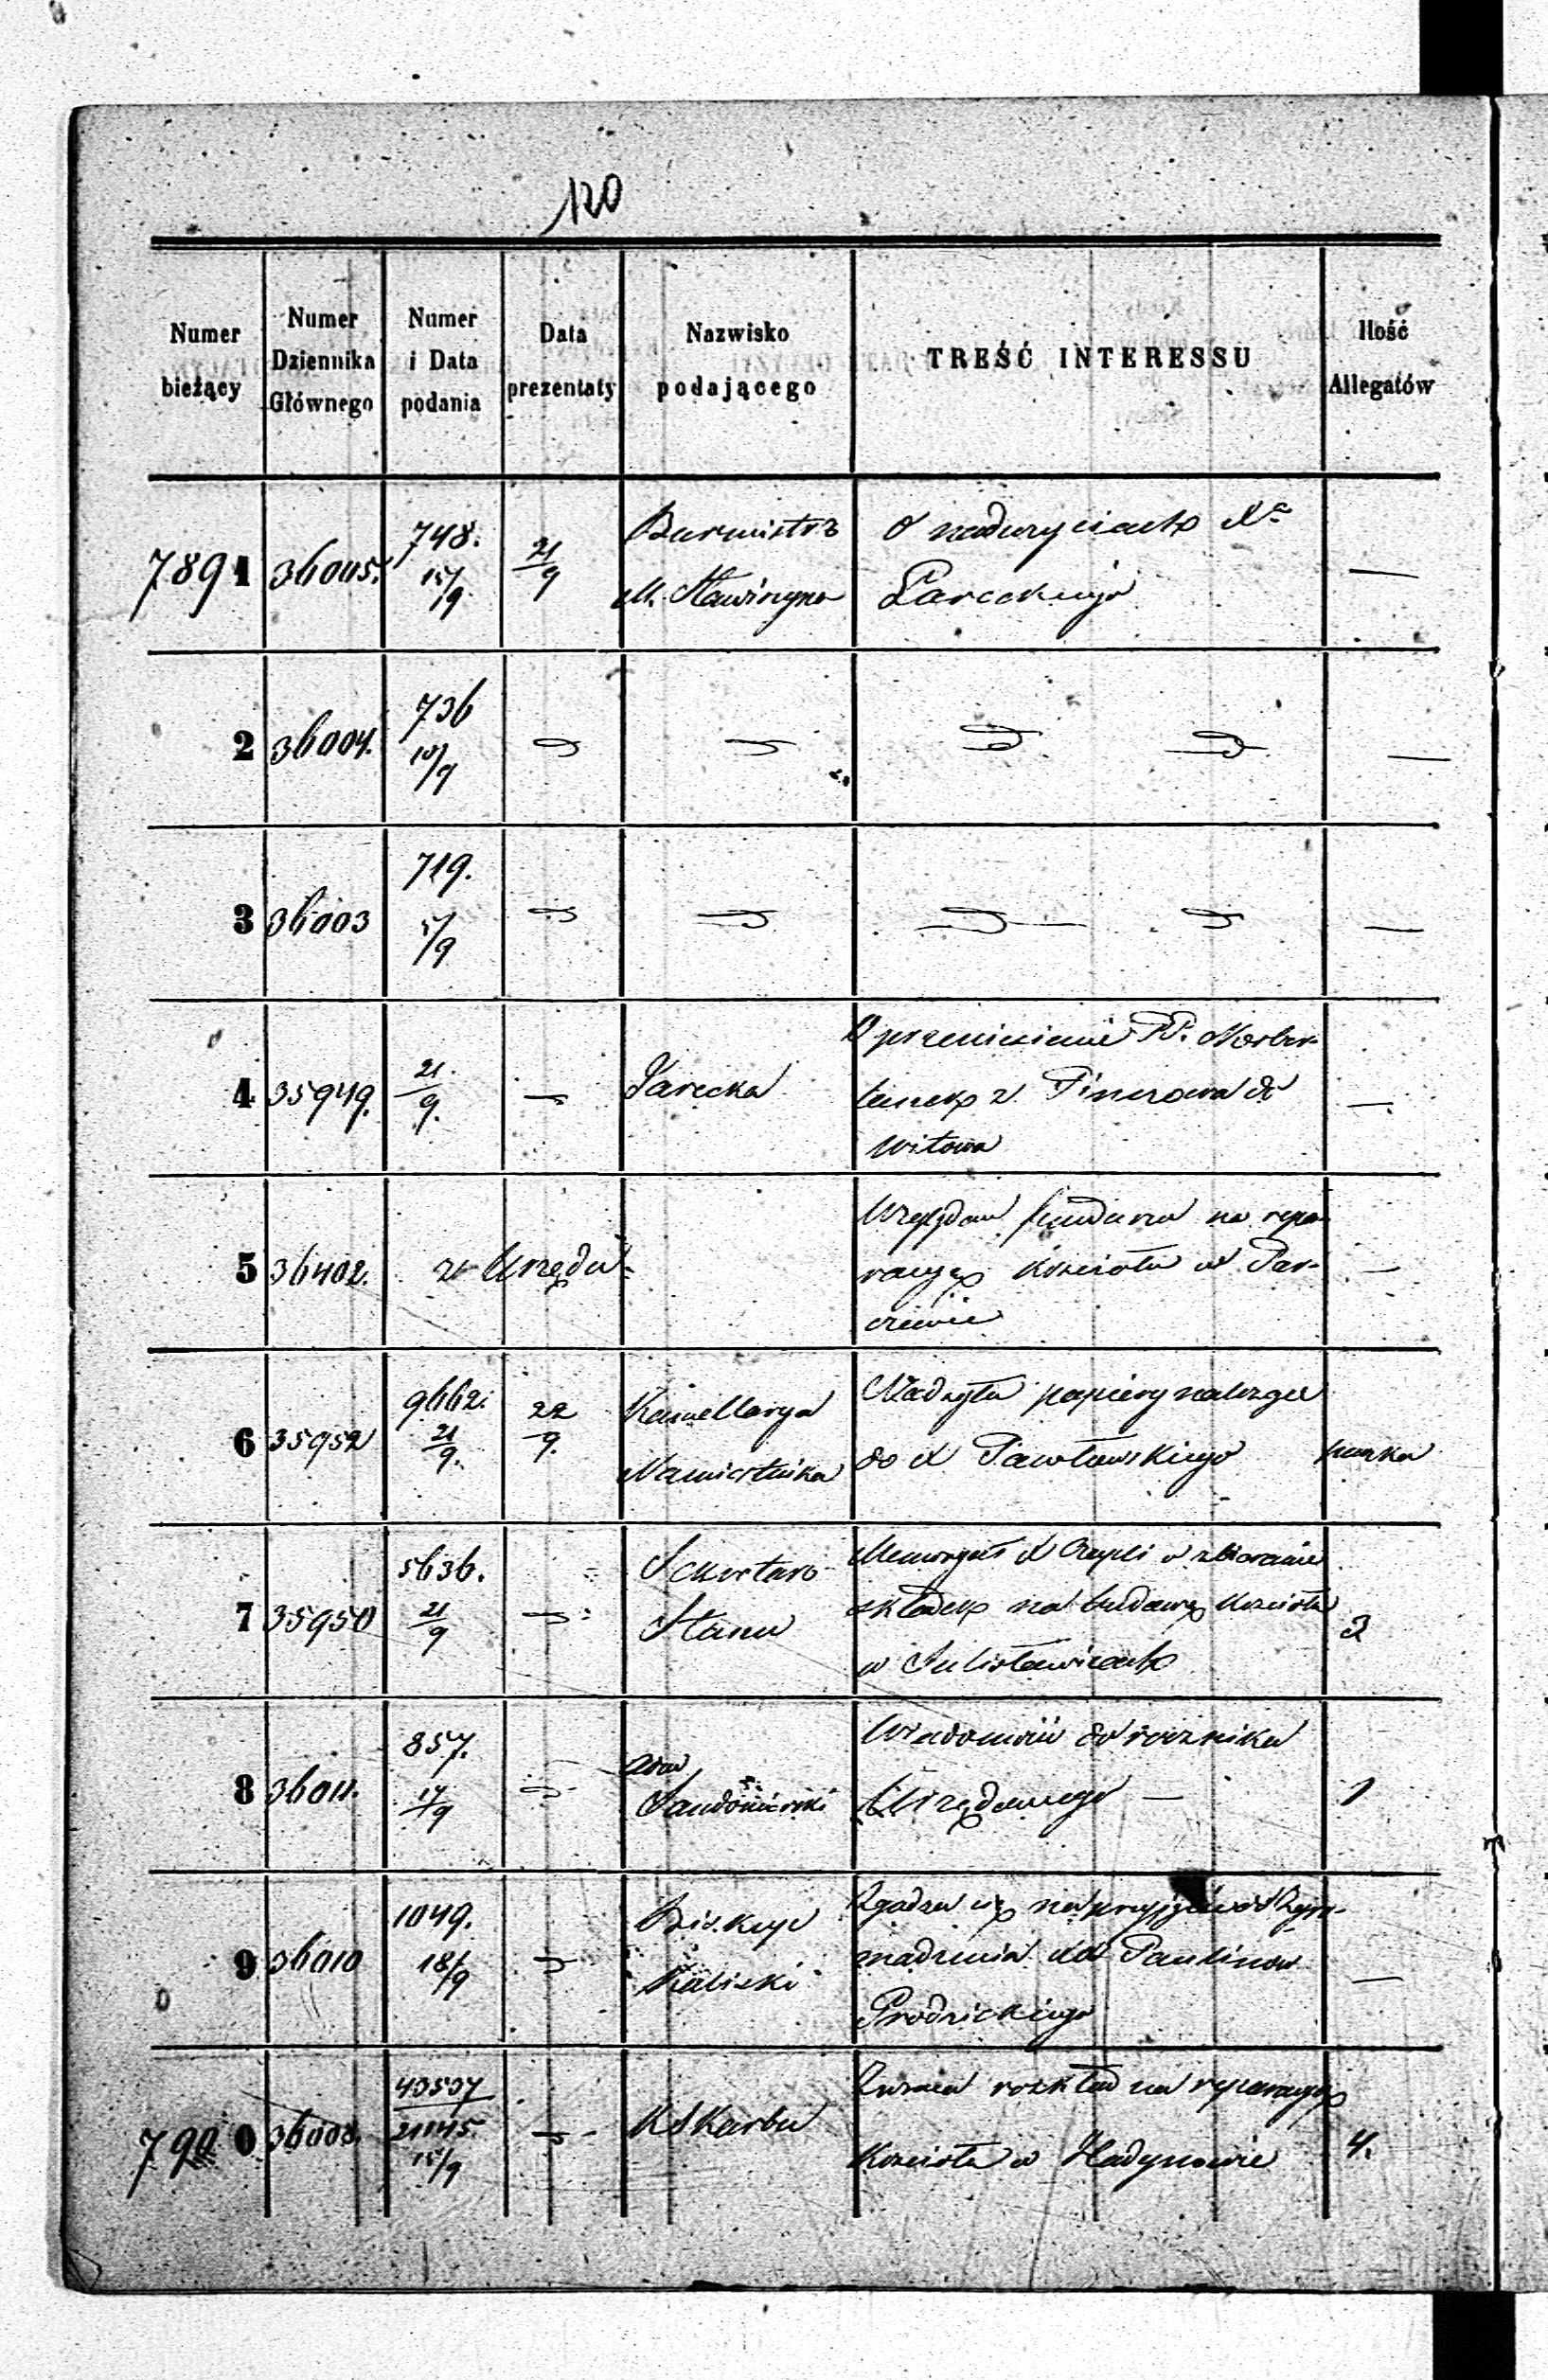 120
Numer bieżący
Numer Dziennika Głównego
Numer i Data podania
Data prezentaty
Nazwisko podającego
TREŚĆ INTERESSU
Ilość Allegatów
7891 36005. 748. 15/9 21/9 Burmistrz
M. Stawiszyna
O nadużyciach Xa
Pareckiego —
2 36004. 736 10/9 —
3 36003 719. 5/9 —
4 35949. 21/9. Jarecka
O przeniesienie PP. Norber-
tanek z Pinczowa do
Witowa —
5 36402. z Urzędu
Względem funduszu na repa-
racyę kościoła w Par-
czewie —
6 35952 9662. 21/9. 22/9. Kancellarya
Namiestnika
Nadsyła papiery należące
do X Pawłowskiego paczka
7 35950 5636. 21/9 Sekretarz
Stanu
Memoryał X Czapli o zbieranie
składek na budowę kościoła
w Sulisławicach 3
8 36011. 857. 17/9 Adm
Sandomierski
Wiadomości do rocznika
Urzędowego — 1
9 36010 1049. 18/9 Biskup
Kaliski
Zgadza się na przyjęcie do Zgro-
madzenia XX Paulinów
Brodzickiego —
7900 36008. 43537/21145. 15/9 K Skarbu
Zwraca rozkład na reperacyę
kościoła w Hadynowie 4.